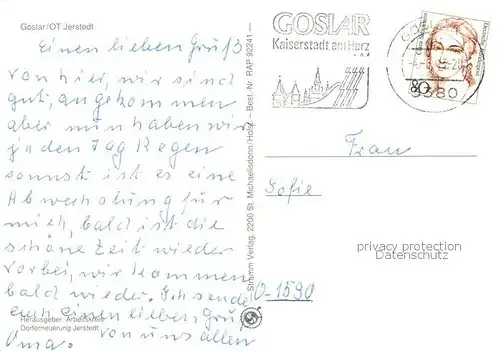 Goslar/OT Jerstedt
Einen lieben Gruß
von hier, wir sind
gut, angekommen
aber nun haben wir
jeden Tag Regen
sonnst ist es eine
Abwechslung für
mich, bald ist die
schöne Zeit wieder
vorbei, wir kommen
bald wieder. Ich sende
euch einen lieben Gruß
Oma. von uns allen
Herausgeber: Arbeitskreis
Dorferneuerung Jerstedt
Stramm Verlag, 2200 St. Michaelisdonn/Holst. - Best.-Nr. RAP 92241
GOSLAR
Kaiserstadt am Harz
80
3380
Frau
Sofie
privacy protection
Datenschutz
O-1590